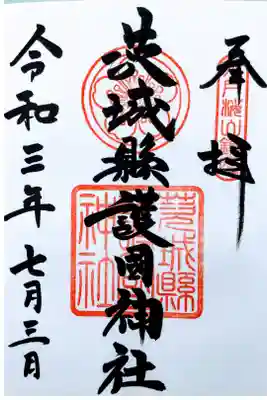 奉拝
茨城縣護國神社
令和三年七月三日
茨城縣
護國
神社